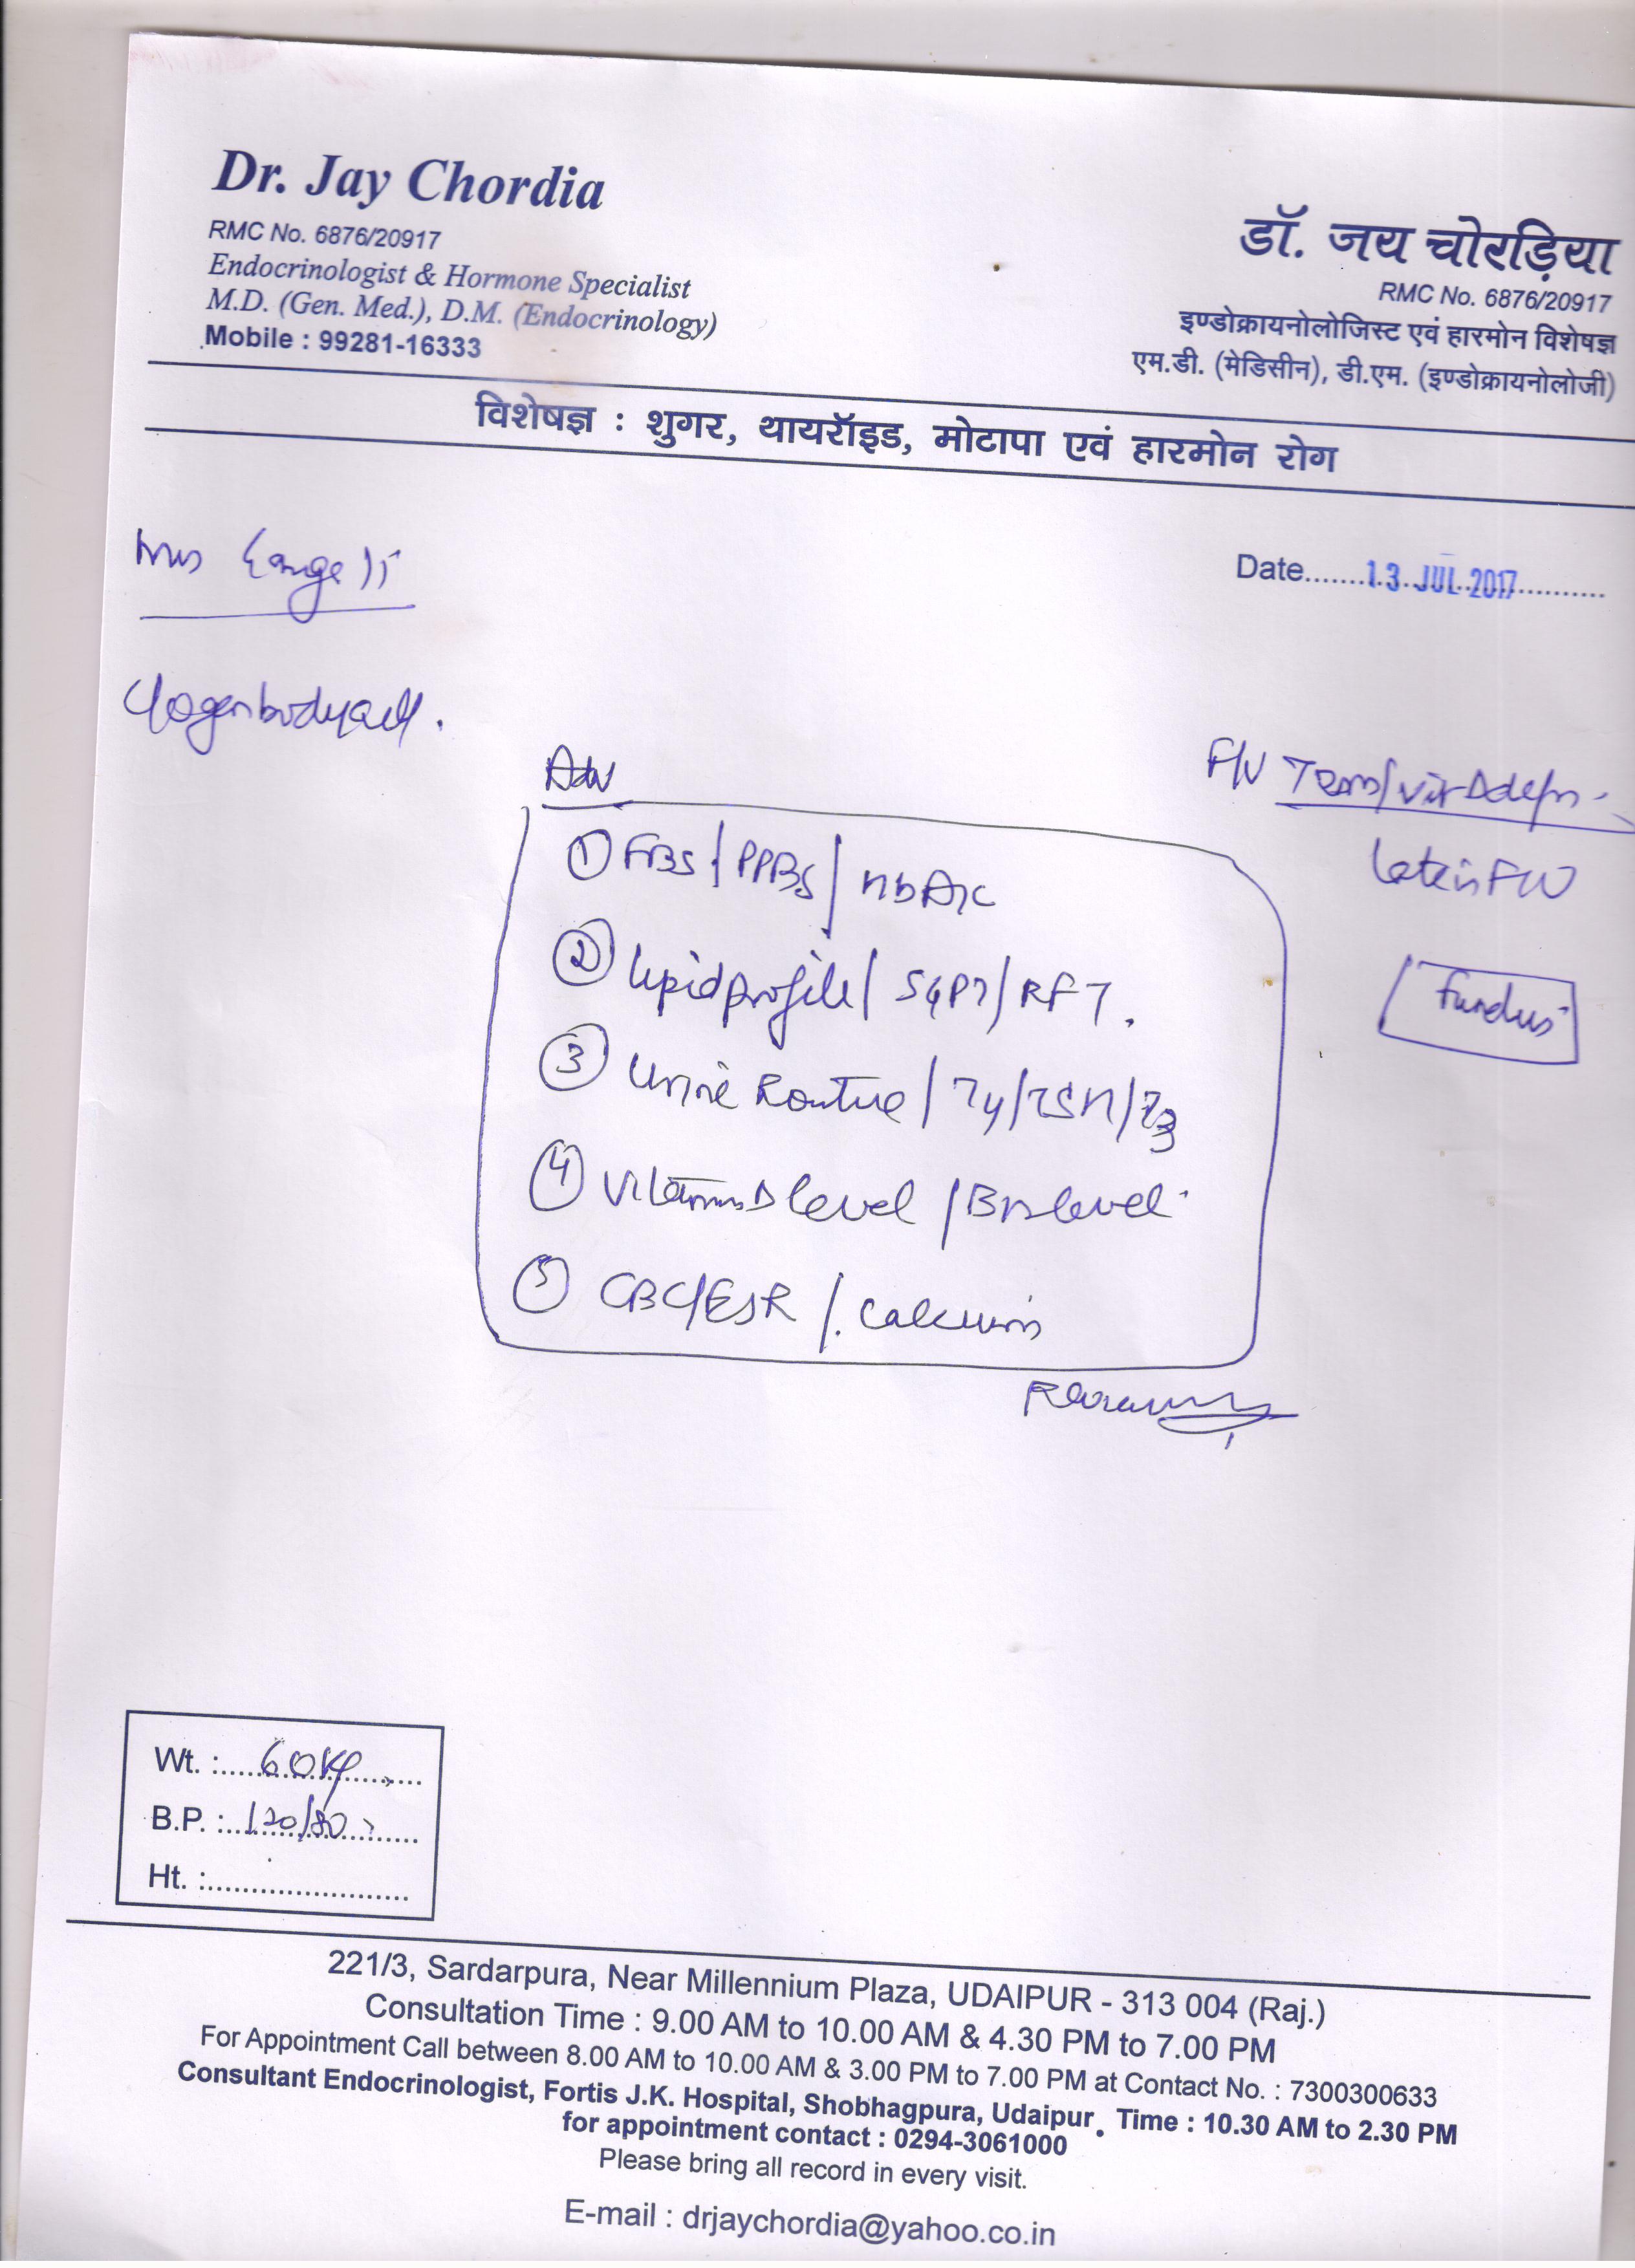 Dr. Jay Chordia
RMC No. 6876/20917
Endocrinologist & Hormone Specialist
M.D. (Gen. Med.), D.M. (Endocrinology)
Mobile : 99281-16333
डॉ. जय चोरड़िया
RMC No. 6876/20917
इण्डोक्रायनोलोजिस्ट एवं हारमोन विशेषज्ञ
एम.डी. (मेडिसीन), डी.एम. (इण्डोक्रायनोलोजी)
विशेषज्ञ : शुगर, थायरॉइड, मोटापा एवं हारमोन रोग
Mrs
Date.......13 JUL 2017............
Adv
F/U
① FBS / PPBS / HbA1c
② Lipid profile / SGPT / RFT.
Fundus
③ Urine Routine / T4 / TSH / T3
④ Vitamin D level / B12 level
⑤ CBC/ESR / Calcium
Wt. :.....60 Kg............
B.P. :..120/80............
Ht. :........................
221/3, Sardarpura, Near Millennium Plaza, UDAIPUR - 313 004 (Raj.)
Consultation Time : 9.00 AM to 10.00 AM & 4.30 PM to 7.00 PM
For Appointment Call between 8.00 AM to 10.00 AM & 3.00 PM to 7.00 PM at Contact No. : 7300300633
Consultant Endocrinologist, Fortis J.K. Hospital, Shobhagpura, Udaipur. Time : 10.30 AM to 2.30 PM
for appointment contact : 0294-3061000
Please bring all record in every visit.
E-mail : drjaychordia@yahoo.co.in